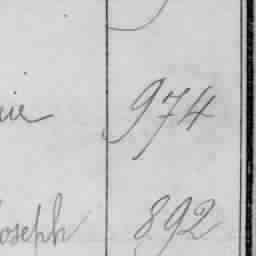 974
oseph 892